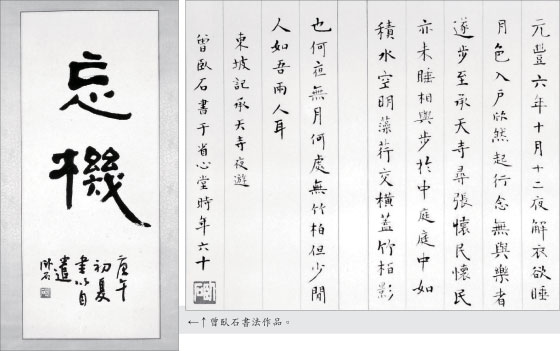 忘機
庚午
初夏
書以自
遣
臥石
元豐六年十月十二夜解衣欲睡
月色入戶欣然起行念無與樂者
遂步至承天寺尋張懷民懷民
亦未睡相與步於中庭庭中如
積水空明藻荇交橫蓋竹柏影
也何夜無月何處無竹柏但少閒
人如吾兩人耳
東坡記承天寺夜遊
曾臥石書于省心堂時年六十
←↑曾臥石書法作品。